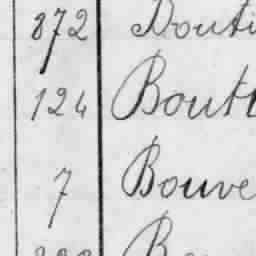 872 Bouti
124 Bout
7 Bouve